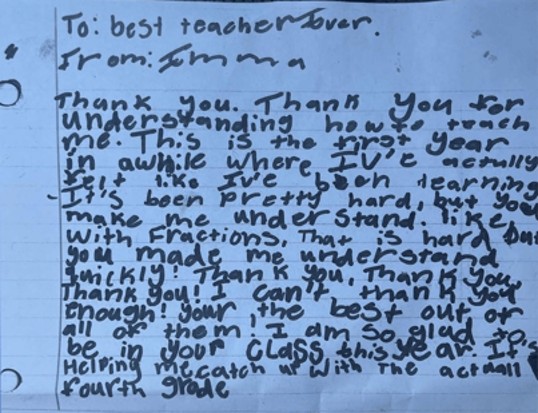 To: best teacher Ever.
From: Emma
Thank you. Thank you for
understanding how to teach
me. This is the first year
in awhile where IV'e actully
felt like Iv'e been learning
It's been pretty hard, but you
make me understand. like
with fractions, That is hard but
you made me understand
quickly! Thank you, Thank you,
Thank you! I can't thank you
Enough! your the best out of
all of them! I am so glad to
be in your class this year. It's
Helping me catch up with the actuall
fourth grade